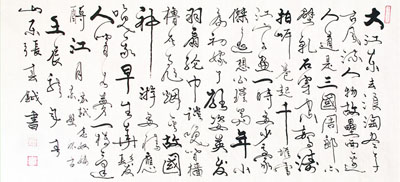 大江东去浪淘尽千
古风流人物故垒西边
人道是三國周郎赤
壁乱石穿空惊涛
拍岸卷起千堆雪
江山如画一时多少豪
傑遥想公瑾當年小
乔初嫁了雄姿英发
羽扇纶巾谈笑间樯
橹灰飞烟灭故國
神游多情应
笑我早生华髮
人间如梦一樽还
酹江月
苏轼念奴娇
赤壁怀古
壬辰
山东張玄書